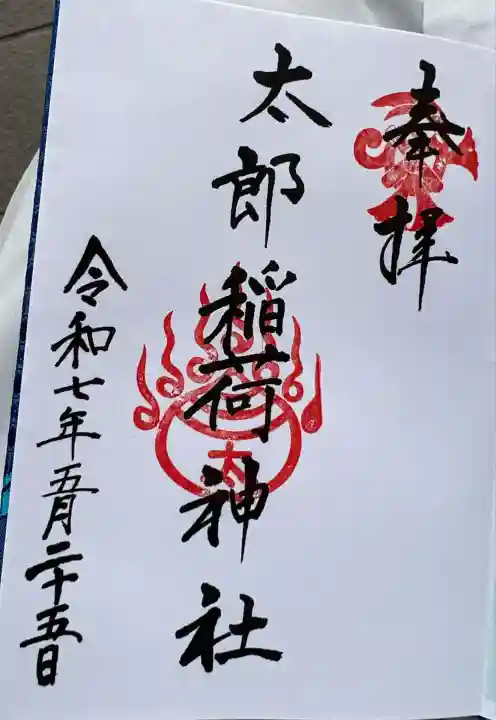 奉拝
太郎稲荷神社
太
令和七年五月二十五日